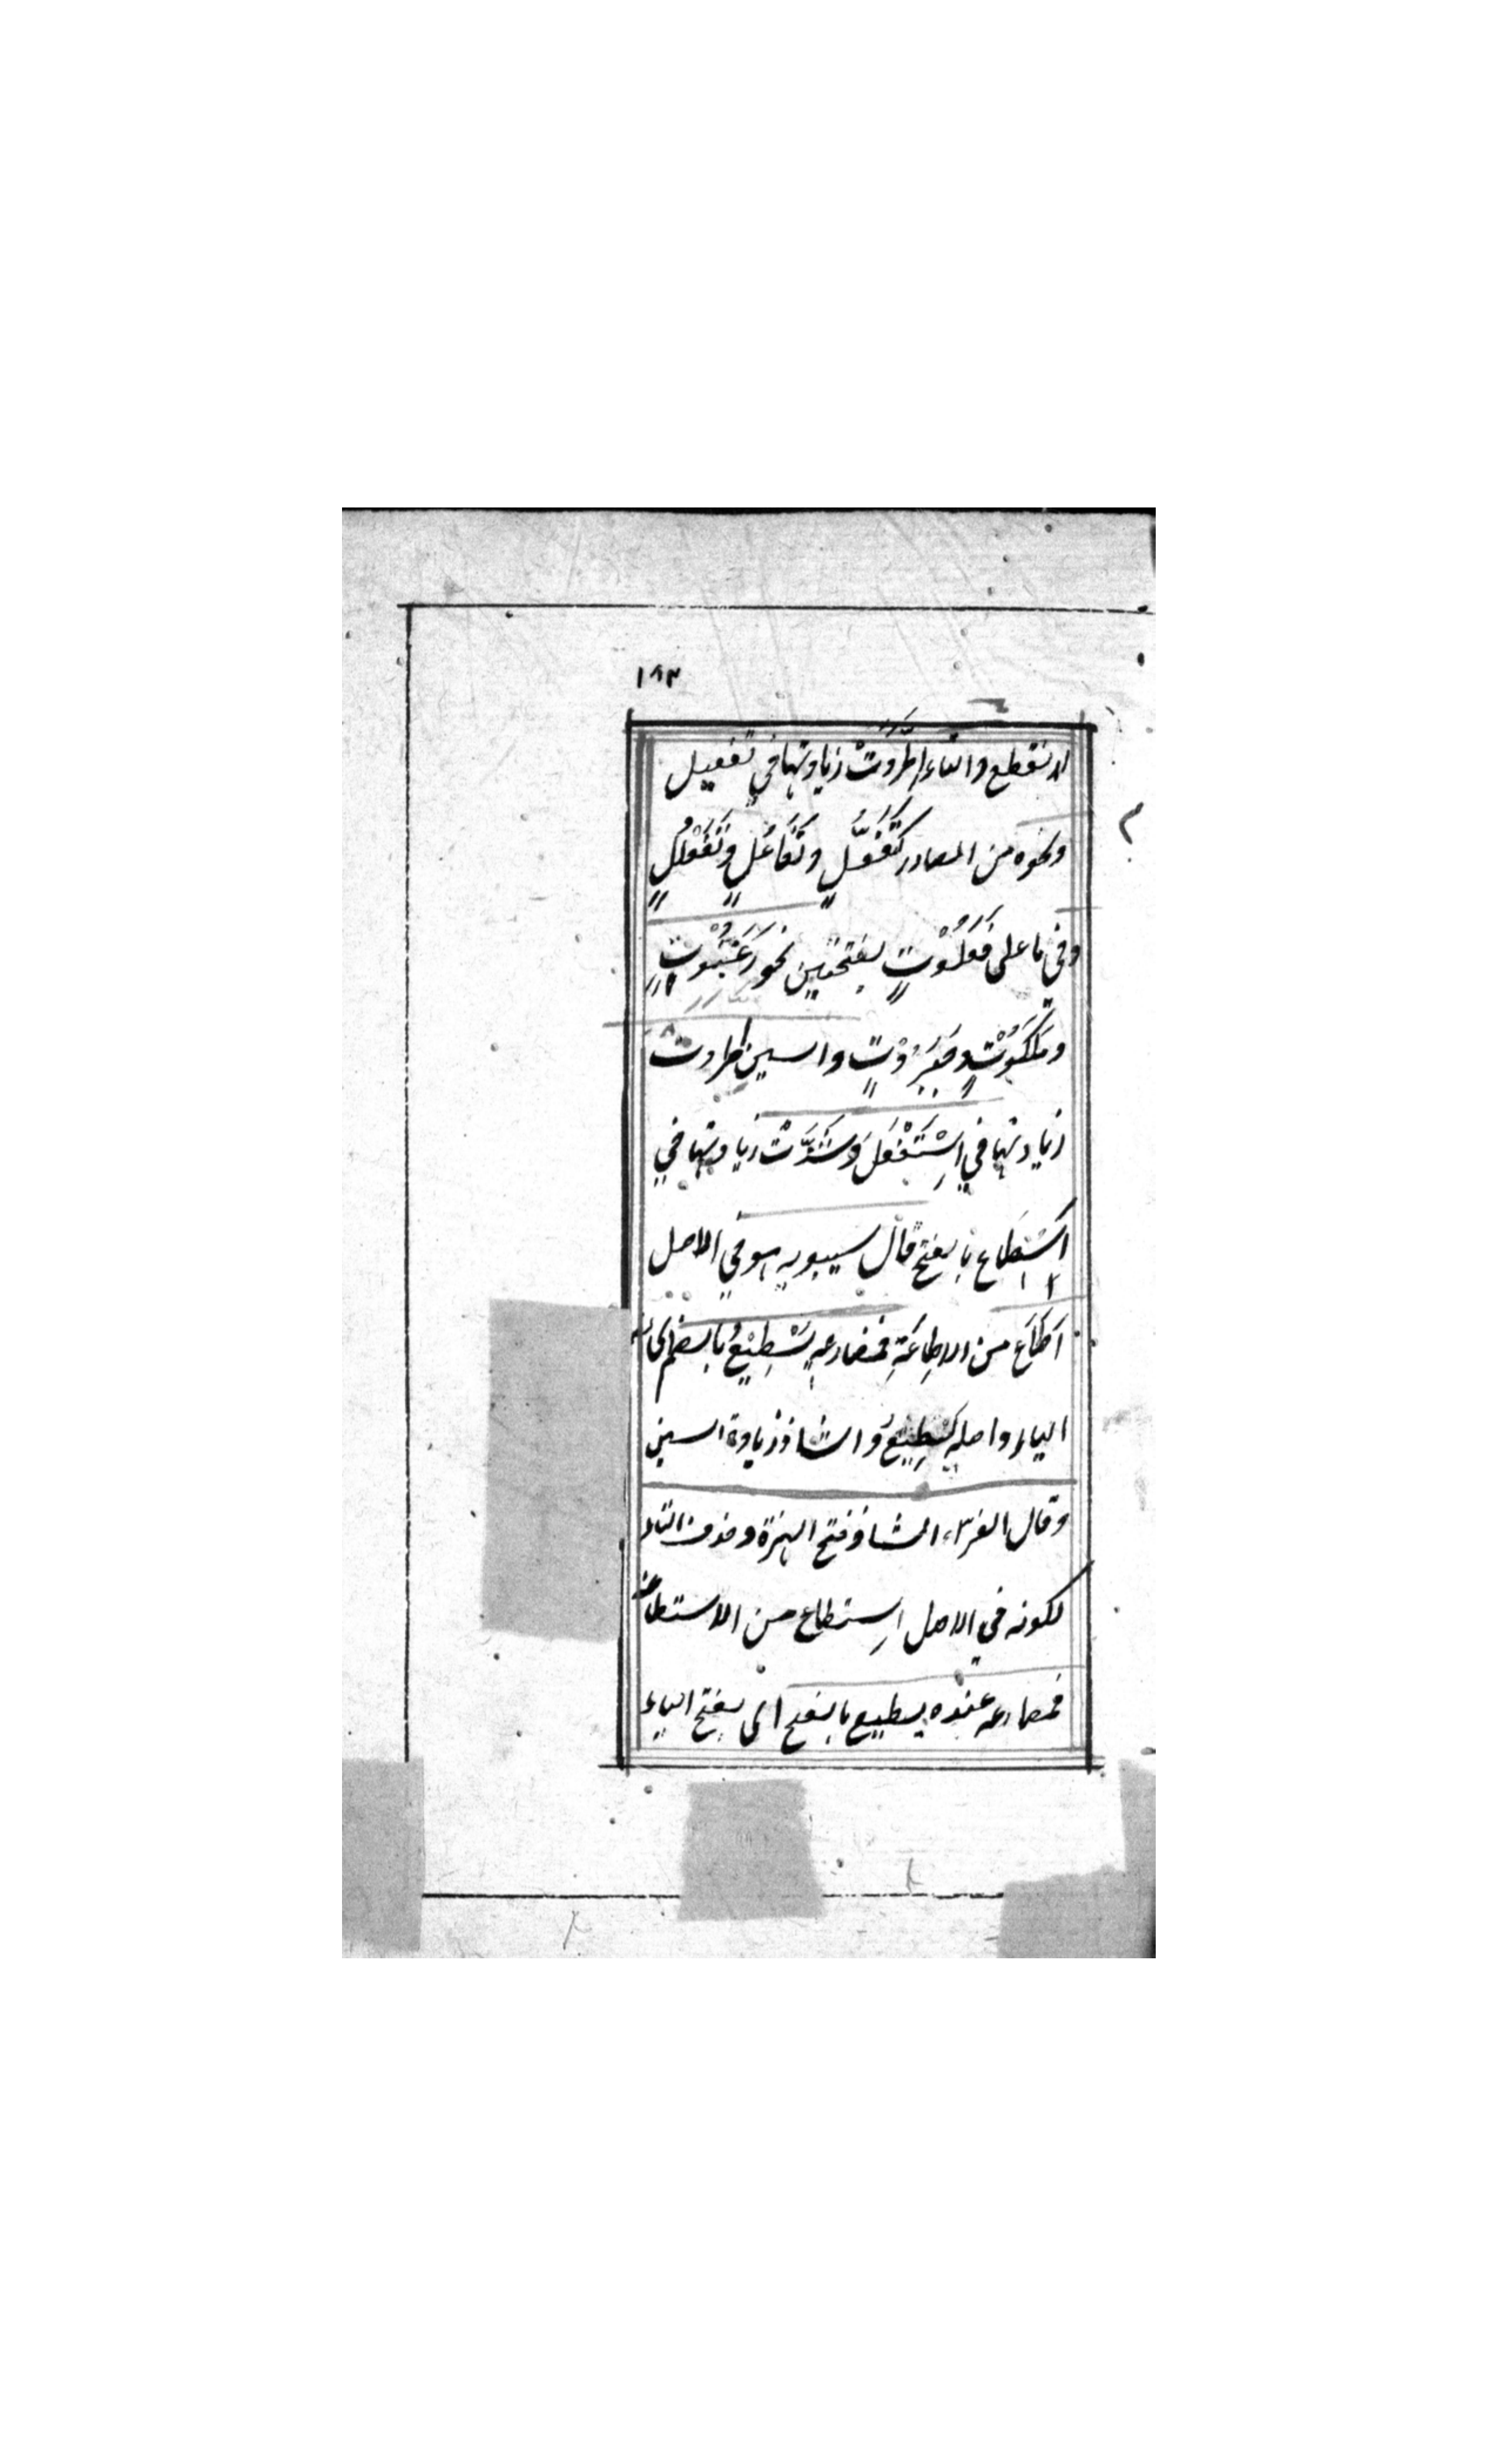 ١٨٣
لا تنقطع والتاء اِطَّرَدَتْ زيادتها في تفعيل
ونحوه من المصادر كَتَفَعُّلٍ وتَفَاعُلٍ وتَفَعْلُلٍ
وفي ما على فَعَلُوْتٍ بفتحتين نحو رَغَبُوْتٍ
ومَلَكُوْتٍ وجَبَرُوْتٍ والسين اطردت
زيادتها في اِسْتَفْعَلَ وشَذَّتْ زيادتها في
اَسْطَاع بالفتح قال سيبويه هو في الاصل
اَطَاعَ من الاِطاعَةِ فمضارعه يُسْطِيْعُ بالضم اى بضم
الياء واصله يُطِيْعُ والشاذ زيادة السين
وقال الفراء الشاذ فتح الهمزة وحذف التاء
لكونه في الاصل اِستطاع من الاستطاعة
فمضارعه عنده يسطيع بالفتح اى بفتح الياء